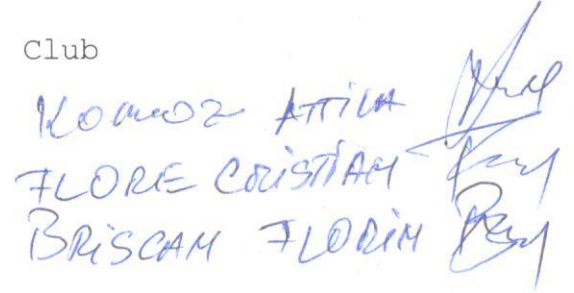 Club
Komoz Attila
FLORE CRISTIAN
BRISCAN FLORIN